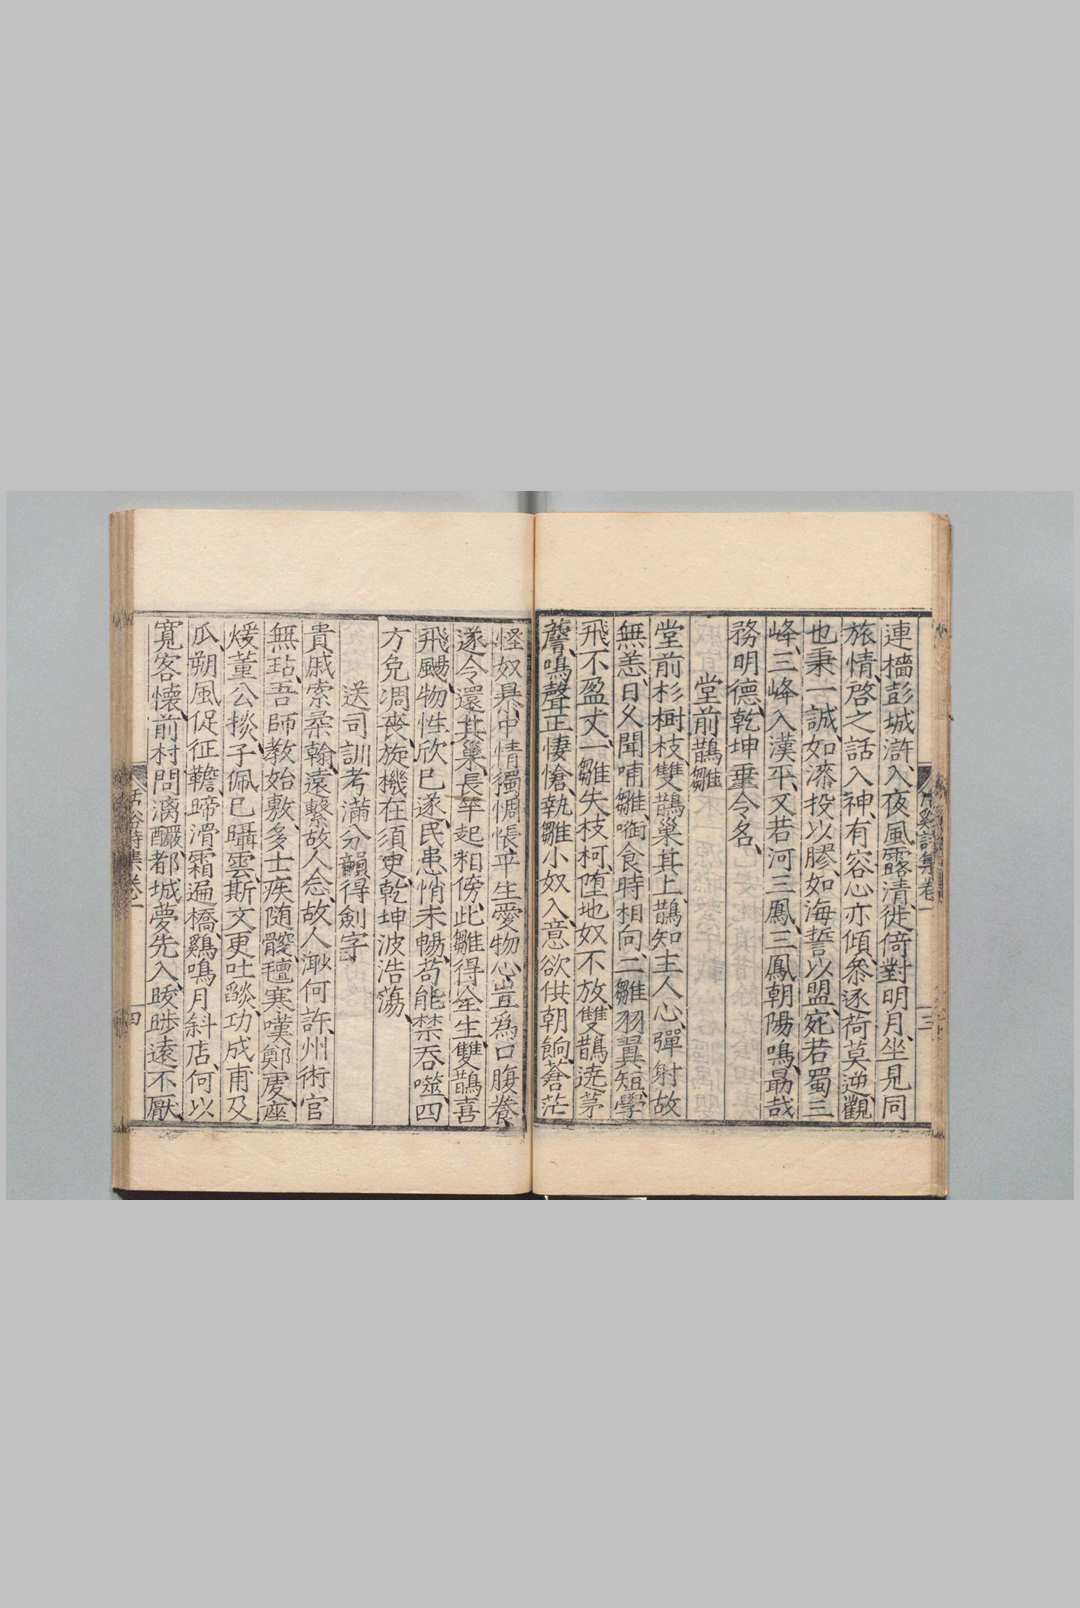 連檣彭城滸、入夜風露清、徙倚對明月、坐見同
旅情、啓之話入神、有容心亦傾、叅逐荷莫逆、觀
也秉一誠、如漆投以膠、如海誓以盟、宛若蜀三
峰、三峰入漢平、又若河三鳳、三鳳朝陽鳴、勗哉
務明德、乾坤垂令名、
堂前鵲雛
堂前杉樹枝、雙鵲巢其上、鵲知主人心、彈射故
無恙、日夕聞哺雛、啣食時相向、二雛羽翼短、學
飛不盈丈、一雛失枝柯、墮地奴不放、雙鵲遶茅
薝、鳴聲正悽愴、執雛小奴入、意欲供朝餉、蒼茫
怪奴畀、中情獨惆悵、平生愛物心、豈為口腹養、
遂令還其巢、長竿起相傍、此雛得全生、雙鵲喜
飛颺、物性欣已遂、民患悄未暢、苟能禁吞噬、四
方免凋喪、旋機在須臾、乾坤波浩蕩、
送司訓考滿分韻得劍字
貴戚索柔翰、遠繫故人念、故人溆何許、州術官
無玷、吾師教始敷、多士疾随驂、氊寒嘆鄭虔、座
煖董公掞、子佩已囁雲、斯文更吐燄、功成甫及
瓜、朔風促征韂、蹄滑霜遍橋、鷄鳴月斜店、何以
寬客懷、前村問漓釅、都城夢先入、晙眇遠不厭
詩集卷一
三
詩集卷一
四